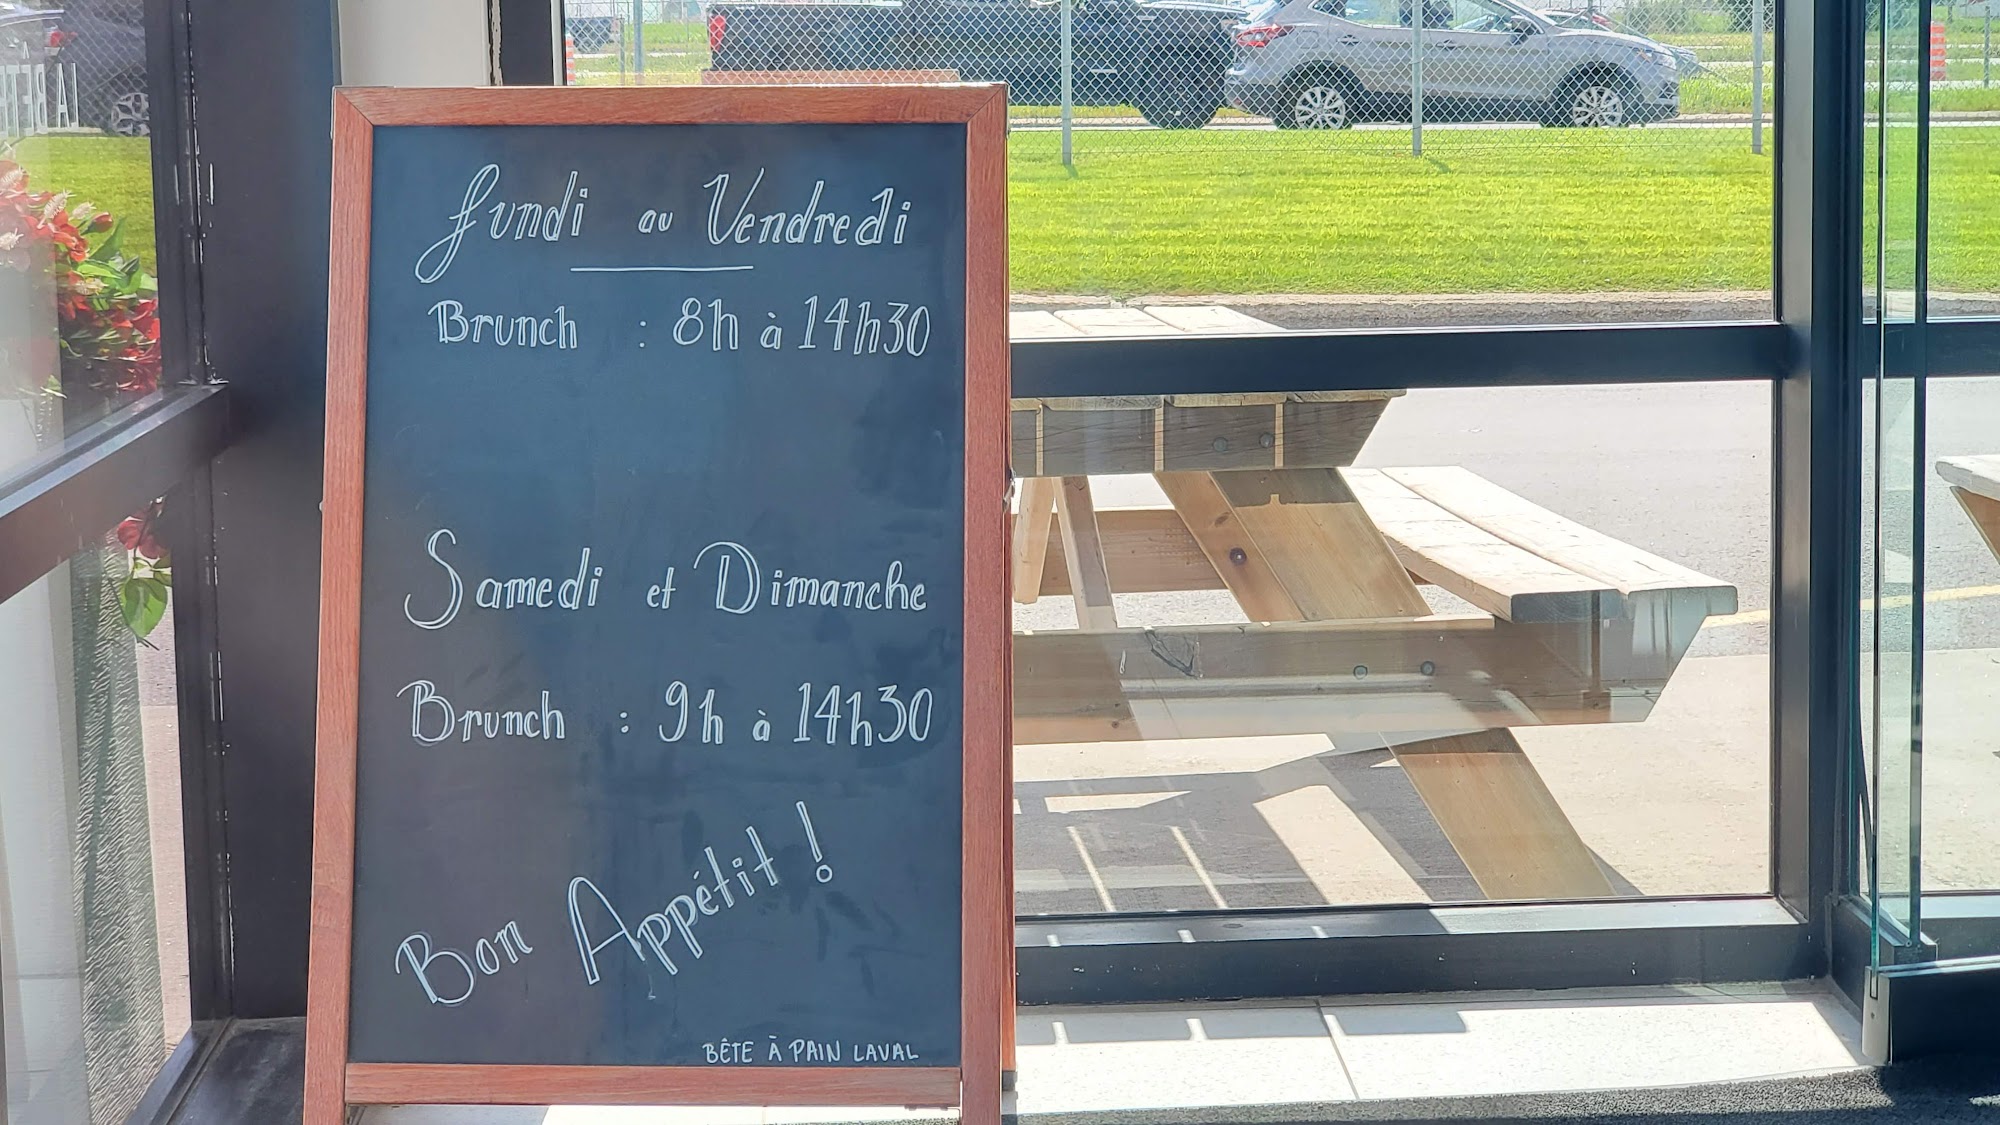 Lundi au Vendredi
Brunch : 8h à 14h30
Samedi et Dimanche
Brunch : 9h à 14h30
Bon Appétit !
BÊTE À PAIN LAVAL